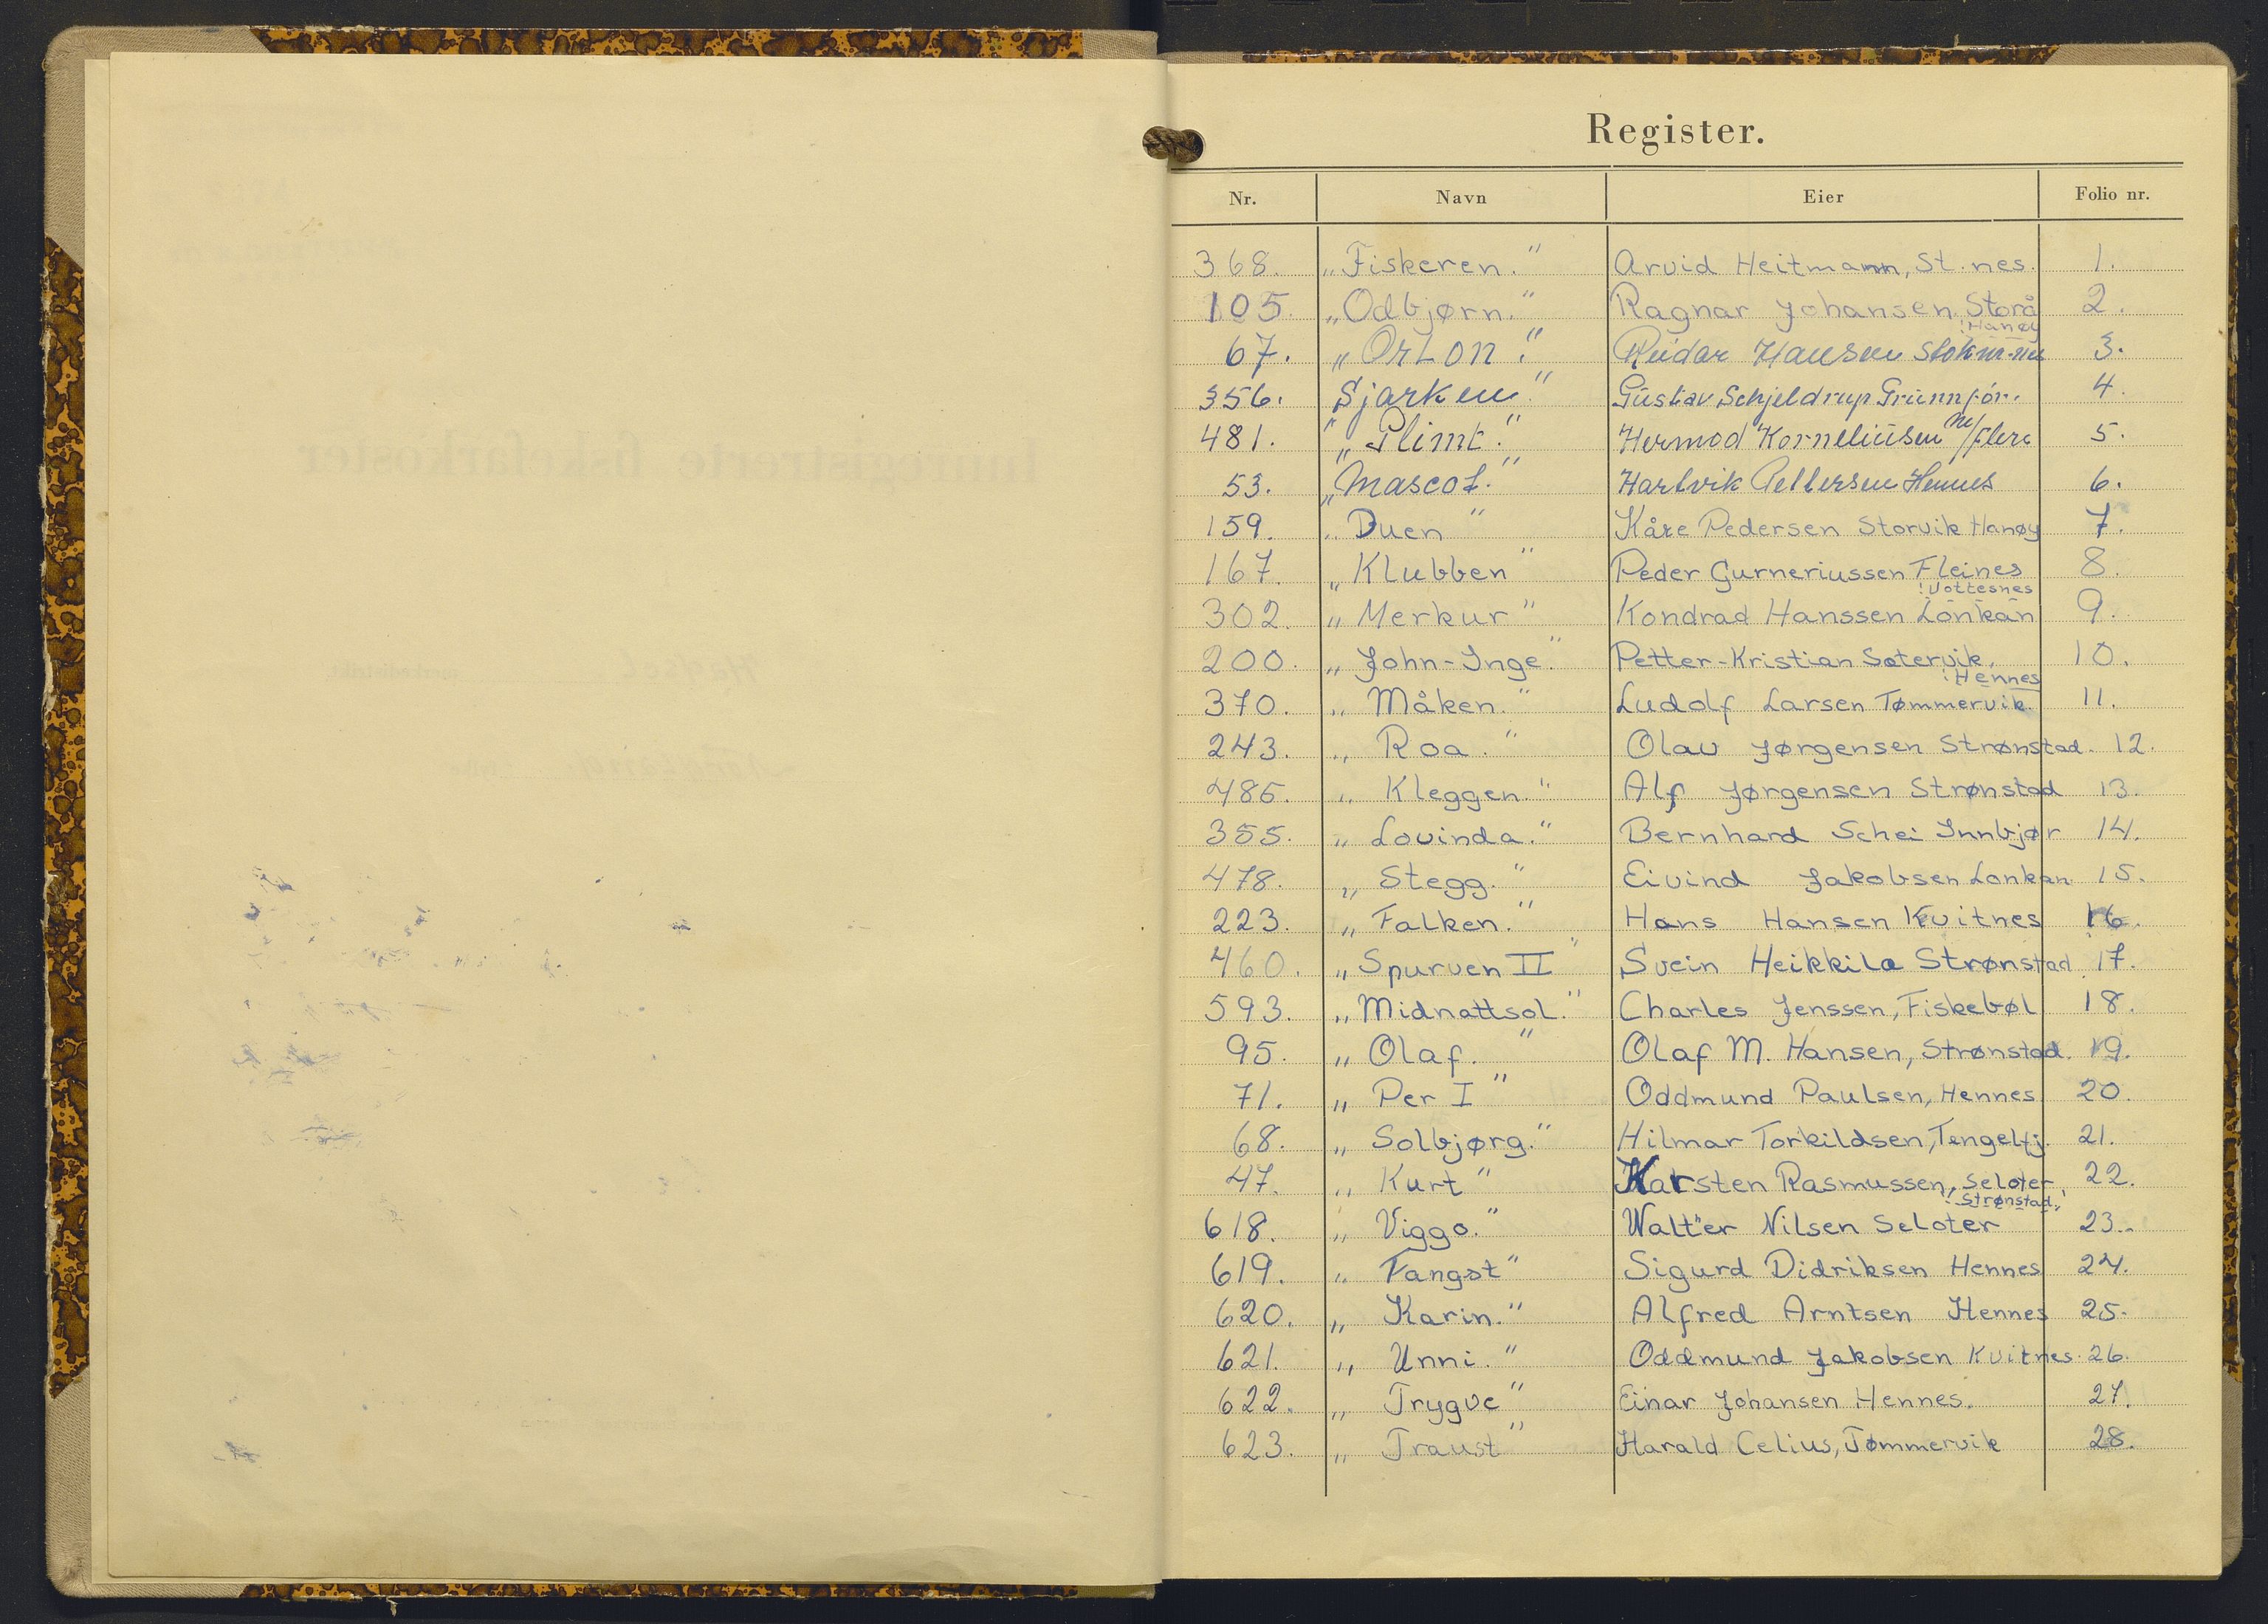 Innregistrerte fiskefarkoster
Hadsel merkedistrikt
Nordland fylke
Register.
Nr. Navn Eier Folio nr.
368. „Fiskeren." Arvid Heitmann, St.nes. 1.
105. „Odbjørn." Ragnar Johansen Storå 2.
Hanøy
67. „Orion". Reidar Hansen Stokm.nes 3.
356. Sjarken." Gustav Schjeldrup Grunnfør. 4.
481. „Plimt." Hermod Korneliusen m/flere 5.
53. „Mascot." Hartvik Pettersen Hennes 6.
159. „Duen" Kåre Pedersen Storvik Hanøy 7.
167. „Klubben" Peder Gurneriussen Fleines 8.
Vottesnes
302. „Merkur" Kondrad Hanssen Lonkan 9.
200. „John-Inge." Petter-Kristian Søtervik, 10.
Hennes
370. „Måken." Ludolf Larsen Tømmervik. 11.
243. „Roa." Olav Jørgensen Strønstad. 12.
485. „Kleggen." Alf Jørgensen Strønstad 13.
355. „Lovinda." Bernhard Schei Innbjør 14.
478. „Stegg." Eivind Jakobsen Lonkan 15.
223. „Falken." Hans Hansen Kvitnes 16.
460. „Spurven II" Svein Heikkila Strønstad 17.
593. „Midnattsol." Charles Jenssen, Fiskebøl 18.
95. „Olaf." Olaf M. Hansen, Strønstad. 19.
71. „Per I" Oddmund Paulsen, Hennes 20.
68. „Solbjørg." Hilmar Torkildsen, Tengelfj. 21.
47. „Kurt" Karsten Rasmussen, Seloter 22.
Strønstad
618. „Viggo." Walter Nilsen Seloter 23.
619. „Fangst" Sigurd Didriksen Hennes 24.
620. „Karin." Alfred Arntsen Hennes 25.
621. „Unni." Oddmund Jakobsen Kvitnes. 26.
622. „Trygve" Einar Johansen Hennes. 27.
623. „Traust" Harald Celius, Tømmervik 28.